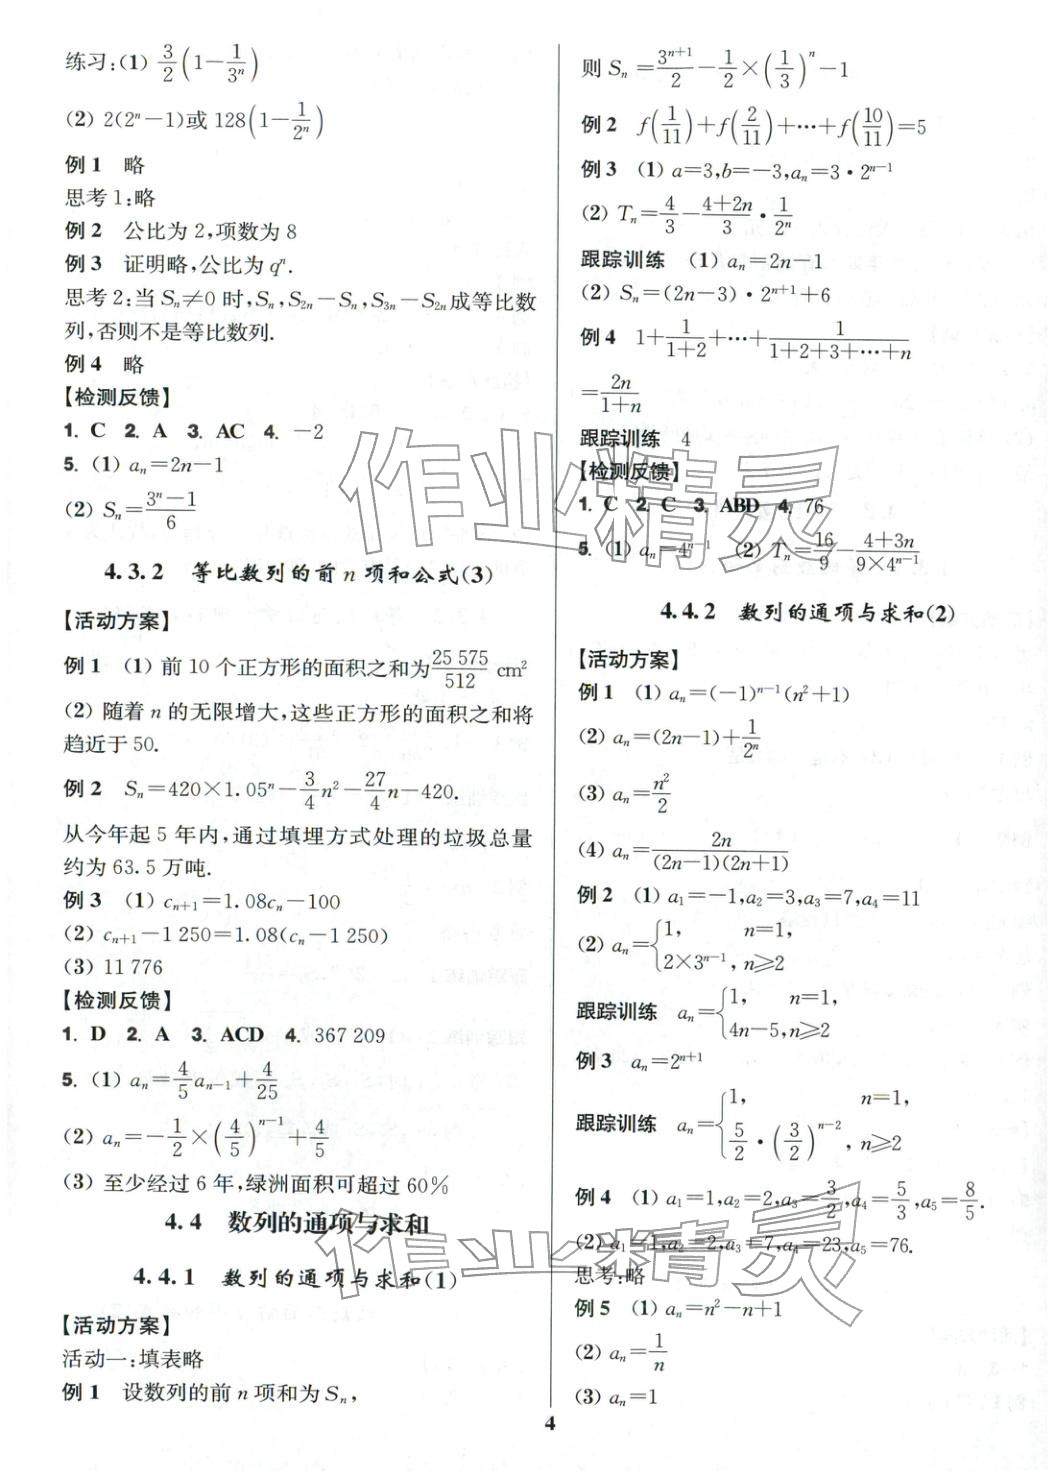 练习:(1) 3/2(1－1/3ⁿ)
(2) 2(2ⁿ－1)或 128(1－1/2ⁿ)
例 1　略
思考 1:略
例 2　公比为 2,项数为 8
例 3　证明略,公比为 qⁿ.
思考 2:当 Sₙ≠0 时,Sₙ,S₂ₙ－Sₙ,S₃ₙ－S₂ₙ成等比数
列,否则不是等比数列.
例 4　略
【检测反馈】
1. C　2. A　3. AC　4. －2
5. (1) aₙ=2n－1
(2) Sₙ=(3ⁿ－1)/6
4.3.2　等比数列的前 n 项和公式(3)
【活动方案】
例 1　(1) 前 10 个正方形的面积之和为 25 575/512 cm²
(2) 随着 n 的无限增大,这些正方形的面积之和将
趋近于 50.
例 2　Sₙ=420×1.05ⁿ－3/4 n²－27/4 n－420.
从今年起 5 年内,通过填埋方式处理的垃圾总量
约为 63.5 万吨.
例 3　(1) cₙ₊₁=1.08cₙ－100
(2) cₙ₊₁－1 250=1.08(cₙ－1 250)
(3) 11 776
【检测反馈】
1. D　2. A　3. ACD　4. 367 209
5. (1) aₙ=4/5 aₙ₋₁+4/25
(2) aₙ=－1/2×(4/5)ⁿ⁻¹+4/5
(3) 至少经过 6 年,绿洲面积可超过 60%
4.4　数列的通项与求和
4.4.1　数列的通项与求和(1)
【活动方案】
活动一:填表略
例 1　设数列的前 n 项和为 Sₙ,
则 Sₙ=3ⁿ⁺¹/2－1/2×(1/3)ⁿ－1
例 2　f(1/11)+f(2/11)+…+f(10/11)=5
例 3　(1) a=3,b=－3,aₙ=3・2ⁿ⁻¹
(2) Tₙ=4/3－(4+2n)/3・1/2ⁿ
跟踪训练　(1) aₙ=2n－1
(2) Sₙ=(2n－3)・2ⁿ⁺¹+6
例 4　1+1/(1+2)+…+1/(1+2+3+…+n)
=2n/(1+n)
跟踪训练　4
【检测反馈】
1. C　2. C　3. ABD　4. 76
5. (1) aₙ=4ⁿ⁻¹　(2) Tₙ=16/9－(4+3n)/(9×4ⁿ⁻¹)
4.4.2　数列的通项与求和(2)
【活动方案】
例 1　(1) aₙ=(－1)ⁿ⁻¹(n²+1)
(2) aₙ=(2n－1)+1/2ⁿ
(3) aₙ=n²/2
(4) aₙ=2n/((2n－1)(2n+1))
例 2　(1) a₁=－1,a₂=3,a₃=7,a₄=11
(2) aₙ={1,　n=1,
2×3ⁿ⁻¹,n≥2
跟踪训练　aₙ={1,　n=1,
4n－5,n≥2
例 3　aₙ=2ⁿ⁺¹
跟踪训练　aₙ={1,　n=1,
5/2・(3/2)ⁿ⁻²,n≥2
例 4　(1) a₁=1,a₂=2,a₃=3/2,a₄=5/3,a₅=8/5.
(2) a₁=1,a₂=2,a₃=7,a₄=23,a₅=76.
思考:略
例 5　(1) aₙ=n²－n+1
(2) aₙ=1/n
(3) aₙ=1
4
作业精灵
作业精灵